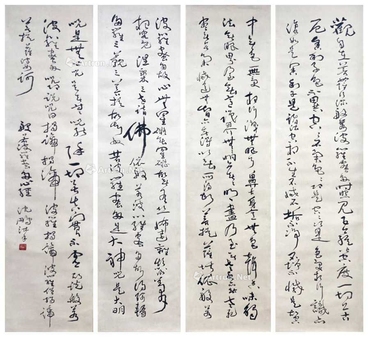 觀自在菩薩行深般若波羅蜜多時照見五蘊皆空度一切苦
厄舍利子色不異空空不異色色即是空空即是色受想行識亦
復如是舍利子是諸法空相不生不滅不垢不淨不增不減是故空
中無色無受想行識無眼耳鼻舌身意無色聲香味觸
法無眼界乃至無意識界無無明亦無無明盡乃至無老死亦無老死
盡無苦集滅道無智亦無得以無所得故菩提薩埵依般若
波羅蜜多故心無罣礙無罣礙故無有恐怖遠離顛倒夢
想究竟涅槃三世諸佛依般若波羅蜜多故得阿耨
多羅三藐三菩提故知般若波羅蜜多是大神咒是大明
咒是無上咒是無等等咒能除一切苦真實不虛故說般若
波羅蜜多咒即說咒曰揭諦揭諦波羅揭諦波羅僧揭諦
菩提薩婆訶
般若波羅蜜多心經 沈鵬